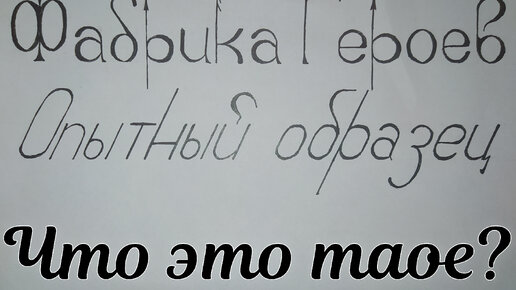 Фабрика Героев
Опытный образец
Что это таое?